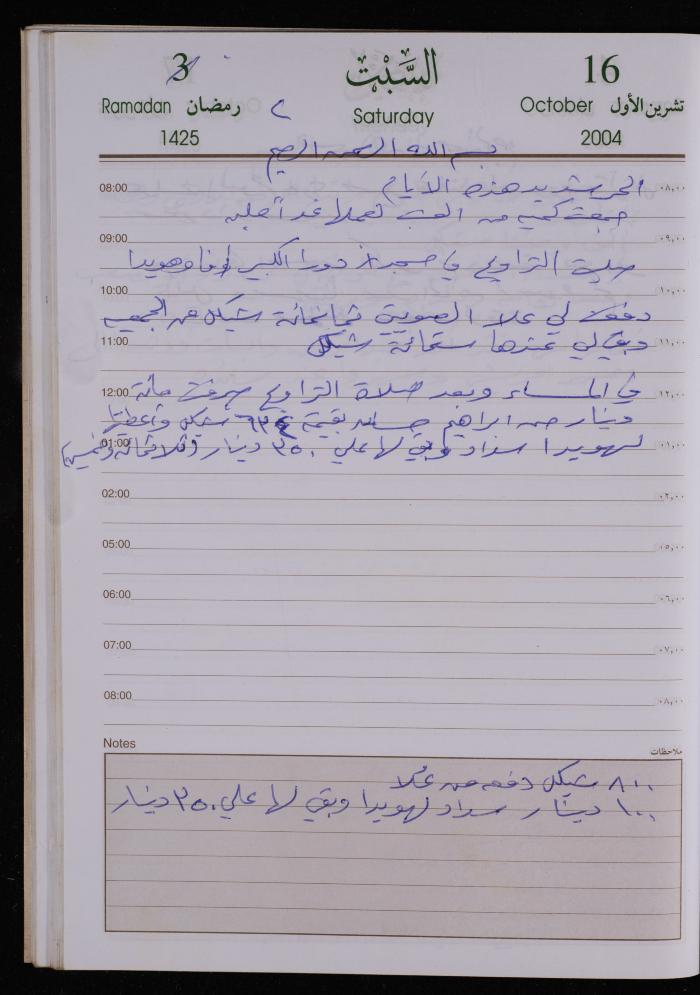 3 السَّبْت 16
Ramadan رمضان ٢ Saturday October تشرين الأول
1425 2004
بسم الله الرحمن الرحيم
08:00 الحر شديد هذه الأيام ٠٨,٠٠
جمعت كمية من العنب لعملا غداً
09:00 ٠٩,٠٠
صليت التراويح في مسجد دورا الكبير أنا وهويدا
10:00 ١٠,٠٠
دفعت لي علا الصويتي ثمانمائة شيكل عن الجمعية
11:00 وبقي لي عندها ستمائة شيكل ١١,٠٠
12:00 في المساء وبعد صلاة التراويح صرفت مائة ١٢,٠٠
دينار من ابراهيم بقيمة ٦٣٤ شيكل وأعطيتها
01:00 لهويدا سداد وبقي لها علي ٣٥٠ دينار (ثلاثمائة وخمسين) ٠١,٠٠
02:00 ٠٢,٠٠
05:00 ٠٥,٠٠
06:00 ٠٦,٠٠
07:00 ٠٧,٠٠
08:00 ٠٨,٠٠
Notes ملاحظات
٨٠٠ شيكل دفعه من عُلا
١٠٠ دينار سداد لهويدا وبقي لها علي ٣٥٠ دينار